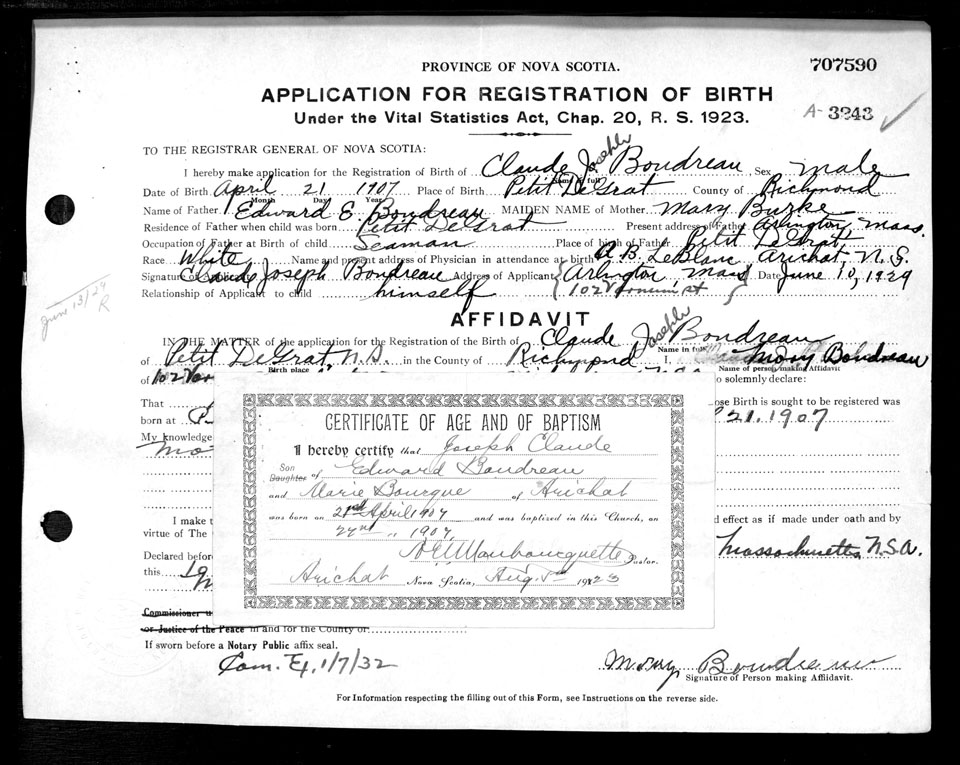 PROVINCE OF NOVA SCOTIA.
707590
APPLICATION FOR REGISTRATION OF BIRTH
A-3243
Under the Vital Statistics Act, Chap. 20, R. S. 1923.
TO THE REGISTRAR GENERAL OF NOVA SCOTIA:
I hereby make application for the Registration of Birth of Claude Joseph Boudreau Sex male
Name in full
Date of Birth April 21 1907 Place of Birth Petit DeGrat County of Richmond
Month Day Year
Name of Father Edward E. Boudreau MAIDEN NAME of Mother Mary Burke
Residence of Father when child was born Petit DeGrat Present address of Father Arlington, Mass.
Occupation of Father at Birth of child Seaman Place of birth of Father Petit DeGrat
Race White Name and present address of Physician in attendance at birth A. B. LeBlanc Arichat, N.S.
Signature of Applicant Claude Joseph Boudreau Address of Applicant Arlington Mass Date June 10, 1929
Relationship of Applicant to child himself 102
June 13/29
R
AFFIDAVIT
IN THE MATTER of the application for the Registration of the Birth of Claude Joseph Boudreau
Name in full
of Petit DeGrat, N.S. in the County of Richmond I, Mary Boudreau
Birth place Name of person making Affidavit
of 102 to solemnly declare:
That ose Birth is sought to be registered was
born at 21, 1907
My knowledge
I make d effect as if made under oath and by
virtue of The Massachusetts, U.S.A.
Declared before
this 19
CERTIFICATE OF AGE AND OF BAPTISM
I hereby certify that Joseph Claude
Son
Daughter of Edward Boudreau
and Marie Bourque of Arichat
was born on 21st April 1907 and was baptized in this Church, on
22nd " 1907.
Pastor.
Arichat Nova Scotia, Aug. 5th 1923
Commissioner
or Justice of the Peace in and for the County of
If sworn before a Notary Public affix seal.
Com. Ex. 1/7/32
Mary Boudreau
Signature of Person making Affidavit.
For Information respecting the filling out of this Form, see Instructions on the reverse side.